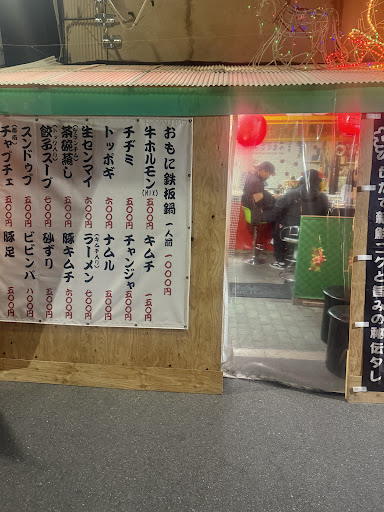 おもに鉄板鍋 一人前 一〇〇〇円
牛ホルモン(MIX) 五〇〇円 キムチ 一五〇円
チヂミ 五〇〇円 チャンジャ 五〇〇円
トッポギ 六〇〇円 ナムル 五〇〇円
生センマイ 六〇〇円 ラーメン 七〇〇円
茶碗蒸し 五〇〇円 豚キムチ 六〇〇円
餃子スープ 七〇〇円 砂ずり 五〇〇円
スンドゥブ 五〇〇円 ビビンバ 八〇〇円
チャプチェ 五〇〇円 豚足 五〇〇円
新鮮ニクと旨みの秘伝タレ